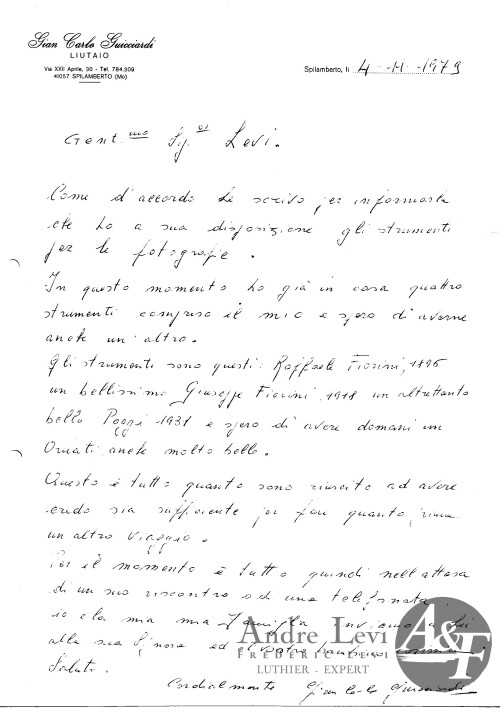 Gian Carlo Guicciardi
LIUTAIO
Via XXII Aprile, 30 - Tel. 784.309
41057 SPILAMBERTO (Mo)
Spilamberto, lì 4-11-1979
Gent.mo Sg. Levi.
Come d'accordo Le scrivo per informarla
che ho a sua disposizione gli strumenti
per le fotografie.
In questo momento ho già in casa quattro
strumenti compreso il mio e spero d'averne
anche un'altro.
Gli strumenti sono questi: Raffaele Fiorini, 1895
un bellissimo Giuseppe Fiorini, 1918 un altrettanto
bello Poggi 1931 e spero di avere domani un
Ornati, anche molto bello.
Questo è tutto quanto sono riuscito ad avere
credo sia sufficiente per fare quanto prima
un altro viaggio.
Per il momento è tutto quindi nell'attesa
di un suo riscontro o di una telefonata
io e la mia mia famiglia inviamo a Lei
alla sua Signora ed
Saluti.
Cordialmente Gian Carlo Guicciardi
Andre Levi
FREDERIC LEVI
LUTHIER - EXPERT
A&F